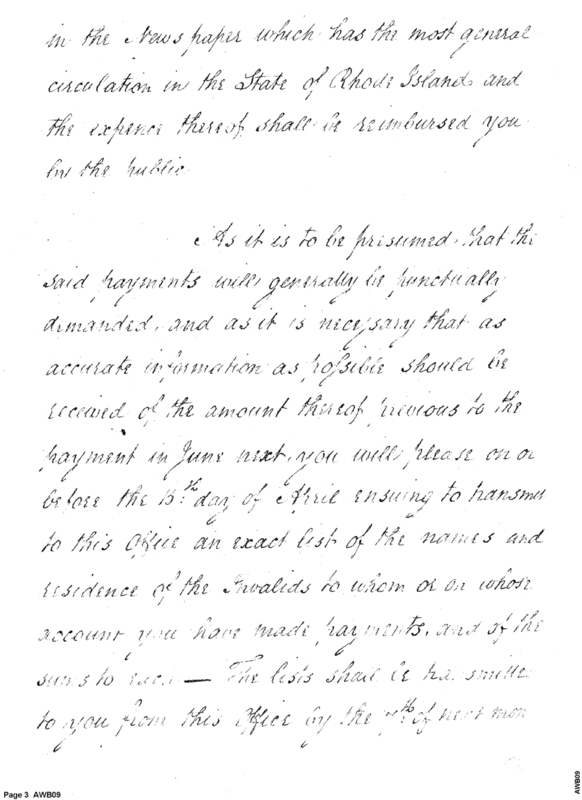 in the News paper which has the most general
circulation in the State of Rhode Island and
the expence thereof shall be reimbursed you
by the public
As it is to be presumed, that the
said payments will generally be punctually
demanded, and as it is necessary that as
accurate information as possible should be
received of the amount thereof previous to the
payment in June next, you will please on or
before the 15th day of April ensuing to transmit
to this Office an exact list of the names and
residence of the Invalids to whom or on whose
account you have made payments, and of the
sums to each — The lists shall be transmitte
to you from this Office by the 7th of next mon
Page 3 AWB09
AWB09